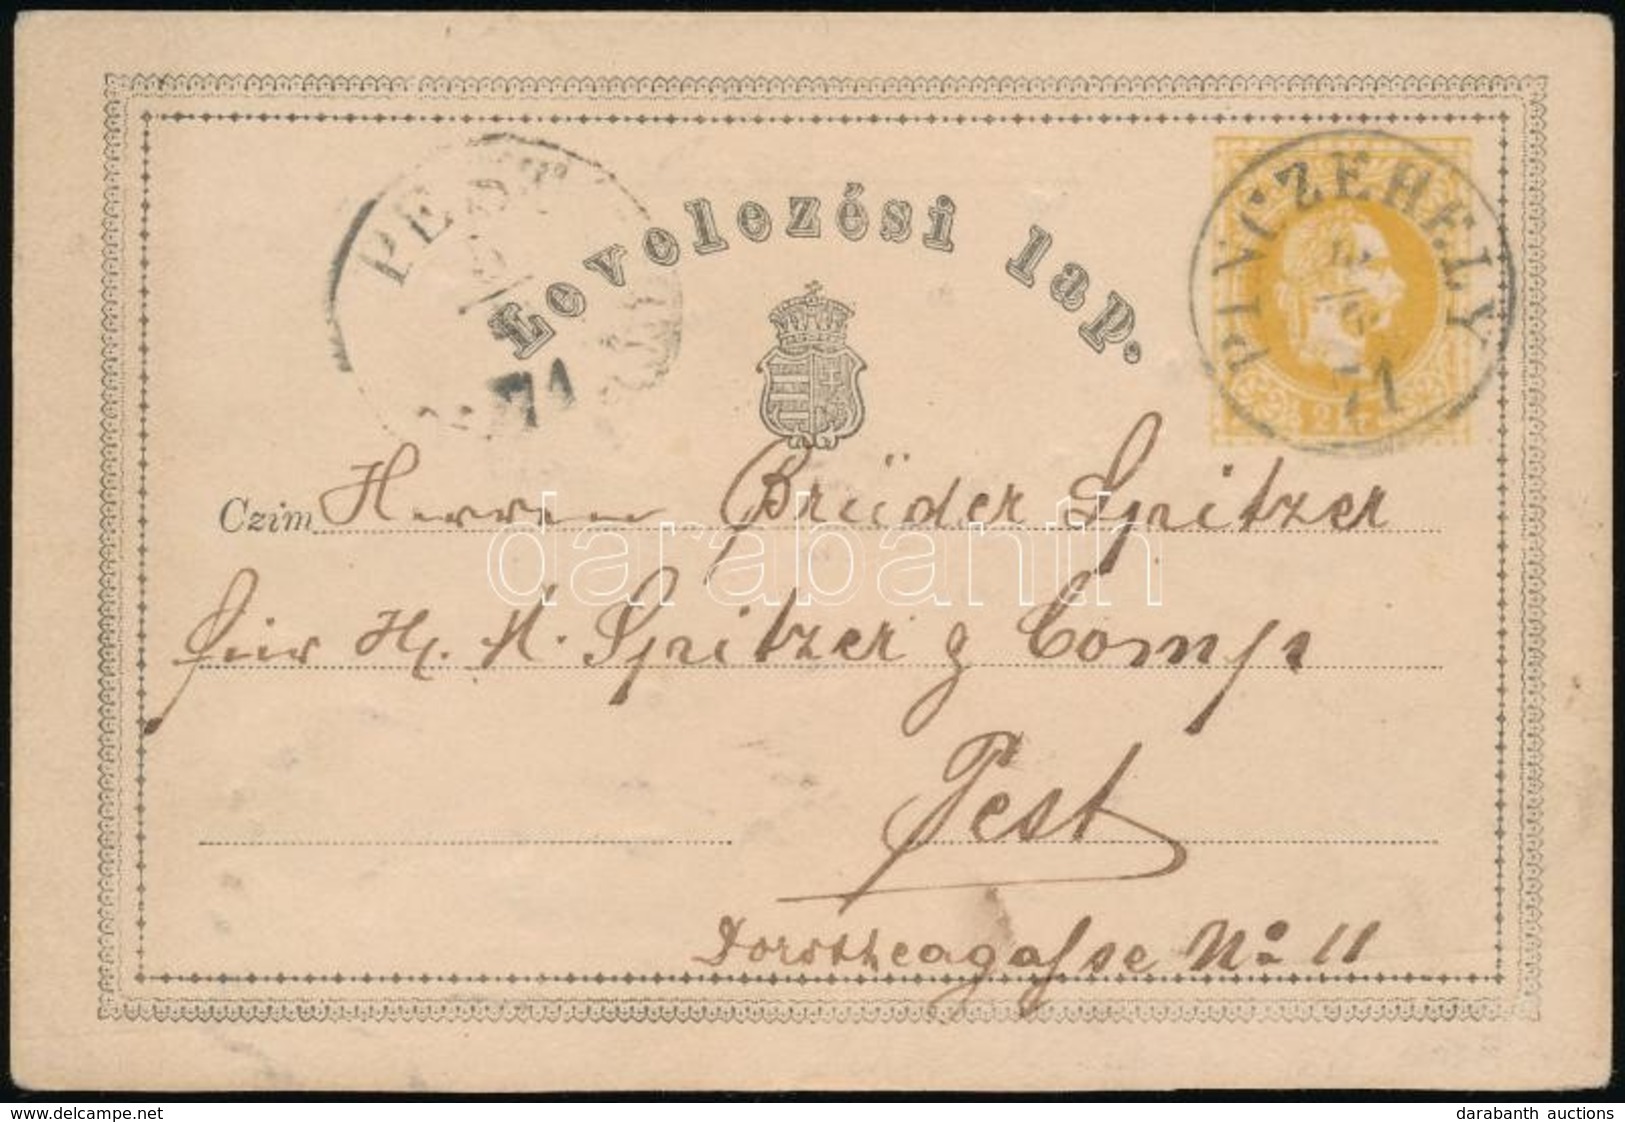 Levelezési lap.
PEST
71
PINCZEHELY
71
2 kr
Czim Herren Brüder Spitzer
für H. H. Spitzer & Comp
Pest
Dorotheagasse No 11
darabanth
www.delcampe.net
darabanth auctions